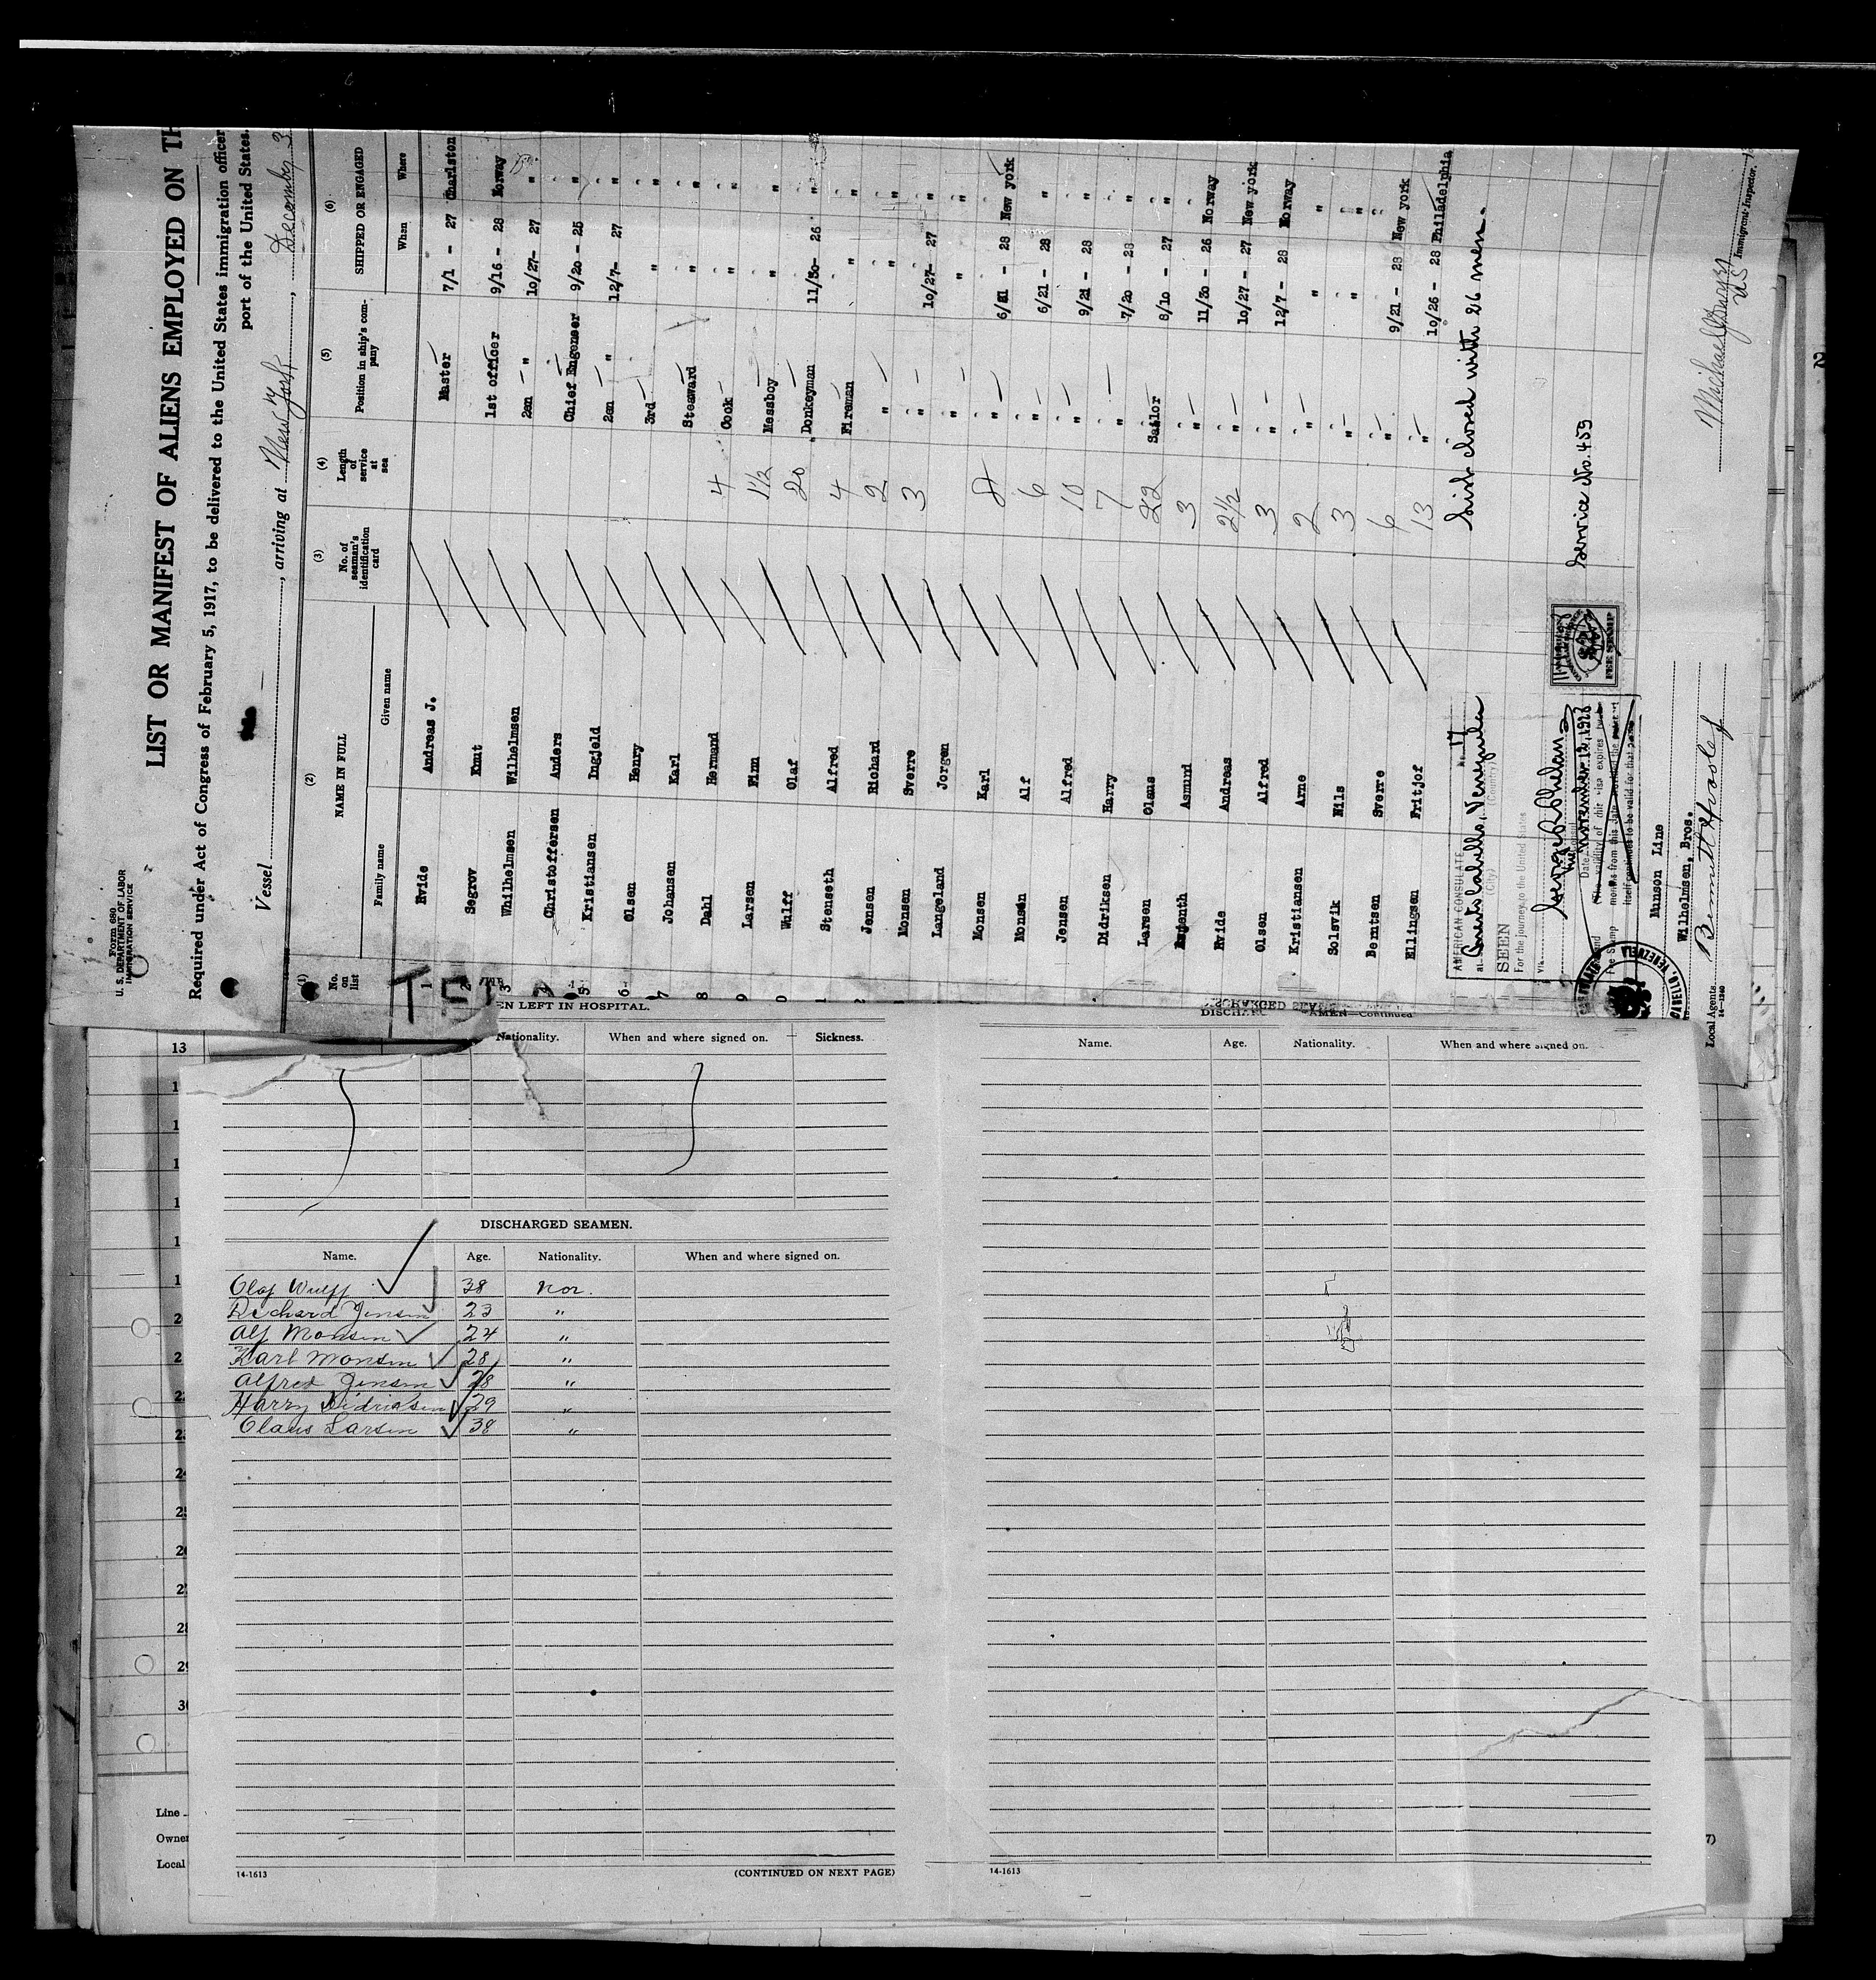 Form 680
U. S. DEPARTMENT OF LABOR
IMMIGRATION SERVICE
LIST OR MANIFEST OF ALIENS EMPLOYED ON TH
Required under Act of Congress of February 5, 1917, to be delivered to the United States immigration officer
port of the United States.
Vessel , arriving at New York , December 3
(1) (2) (3) (4) (5) (6)
No. on list NAME IN FULL No. of seaman's identification card Length of service at sea Position in ship's company SHIPPED OR ENGAGED
Family name Given name When Where
1 Evide Andreas J. Master 7/1 - 27 Charlston
2 Segrov Knut 1st officer 9/16 - 28 Norway
3 Whilhelmsen Wilhelmsen 2en " 10/27- 27 "
Christoffersen Anders Chief Engenser 9/20 - 25 "
5 Kristiansen Ingjeld 2en " 12/7- 27 "
6 Olsen Henry 3rd " "
7 Johansen Karl Steaward " "
8 Dahl Hermand 4 Cook " "
9 Larsen Finn 1½ Messboy " "
0 Wulff Olaf 20 Donkeyman 11/30- 26 "
1 Stenseth Alfred 4 Fireman " "
2 Jensen Richard 2 " " "
Monsen Sverre 3 " 10/27- 27 "
Langeland Jorgen " " "
Monsen Karl 8 " 6/21 - 28 New york
Monsen Alf 6 " 6/21 - 28 "
Jensen Alfred 10 " 9/21 - 28 "
Didriksen Harry 7 " 7/20 - 28 "
Larsen Olaus 22 Sailor 8/10 - 27 "
Asmund 3 " 11/30 - 26 Norway
Evide Andreas 2½ " 10/27 - 27 New york
Olsen Alfred 3 " 12/7 - 28 Norway
Kristiansen Arne 2 " " "
Solsvik Nils 3 " " "
Berntsen Sverre 6 " 9/21 - 28 New york
Ellingsen Fritjof 13 " 10/26 - 28 Philadelphia
List closed with 26 men.
AMERICAN CONSULATE No. 17
at Puerto Cabello, Venezuela
(City) (Country)
SEEN
For the journey to the United States
via
George R. Phelan
Date November 12, 1928
(The validity of this visa expires
months from this date
itself continues to be valid for that
Fee Stamp
FEE STAMP
Service No. 459
CABELLO, VENEZUELA
Munson Line
Wilhelmsen, Bros.
Local Agents.
14-1240
Michael
US Immigrant Inspector.
EN LEFT IN HOSPITAL.
Nationality. When and where signed on. Sickness.
DISCHARGED SEAMEN.
Name. Age. Nationality. When and where signed on.
Olaf Wulff 38 Nor.
Richard Jensen 23 "
Alf Monsen 24 "
Karl Monsen 28 "
Alfred Jensen 28 "
Harry Didriksen 29 "
Olaus Larsen 38 "
14-1613 (CONTINUED ON NEXT PAGE)
DISCHARGED SEAMEN—Continued
Name. Age. Nationality. When and where signed on.
14-1613
13
24
29
Line
Owner
Local
7)
2